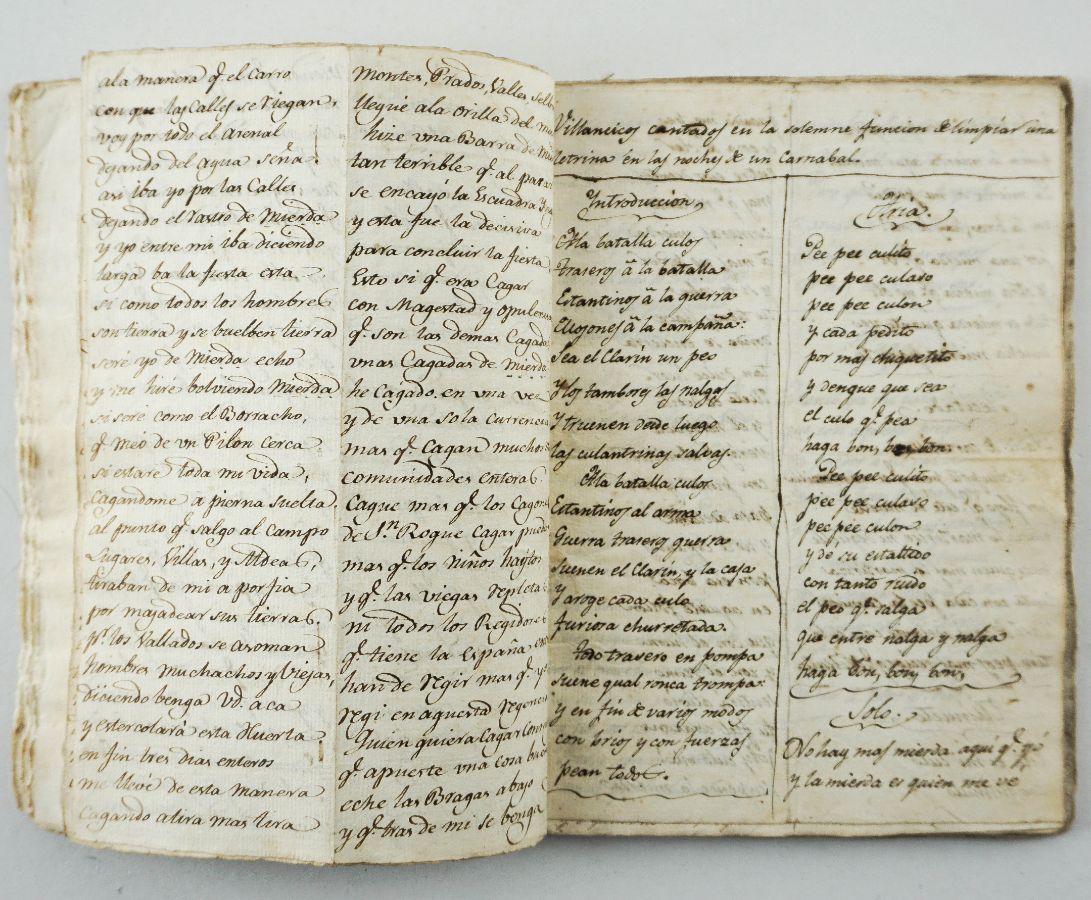 ala manera q.e el Carro
con que las Calles se riegan,
voy por todo el arenal
dejando del agua seña.
asi iba yo por las Calles
Dejando el rastro de Mierda
y yo entre mi iba diciendo
larga ba la fiesta esta
si como todos los hombres
son tierra y se buelben tierra
seré yo de Mierda echo
y me hiré bolviendo Mierda
si seré como el Borracho,
q.e meó de un Pilon cerca
si estaré toda mi vida,
Cagandome a pierna suelta.
al punto q.e salgo al Campo
Lugares, Villas, y Aldeas,
tiraban de mi a porfia
por majadear sus tierras.
p.r los Vallados se asoman
hombres muchachos y Viejas,
Diciendo benga Vd. aca
y estercolará esta Huerta
en fin tres dias enteros
me llevé de esta manera
Cagando atira mas tira
Montes, Prados, Valles, Sel
llegué ala orilla del m
hize una Barra de Mi
tan terrible q.e al pasar
se encayó la Escuadra
y esta fue la decisiva
para concluir la fiesta
Esto si q.e era Cagar
con Magestad y opulen
q.e son las demas Cagad
unas Cagadas de Mierda
he Cagado en una vez
y de una sola currencia
mas q.e Cagan muchos
comunidades enteras
Caque mas q.e los Cagon
de S.n Roque Cagar pued
mas q.e los niños haytos
y q.e las viegas repleta
ni todos los Regidores
q.e tiene la España
han de regir mas q.e yo
regi en aquesta regenc
Quien quiera Cagar con
q.e apueste una cosa bue
eche las Bragas abajo
y q.e tras de mi se benga
Villancicos cantados en la solemne funcion de limpiar una
letrina en las noches de un Carnabal.
Introduccion,
A la batalla culos
traseros á la batalla
Estantinos á la guerra
A ojones á la campaña:
Sea el Clarin un peo
y los tambores las nalgas
Y truenen desde luego
las culantrinas salvas.
A la batalla culos
Estantinos al arma
Guerra traseros guerra
Suenen el Clarin, y la caja
Y aroge cada culo
furiosa churretada.
todo trasero en pompa
suene qual ronca trompa:
y en fin de varios modos
con brios y con fuerzas
pean todos.
Pee pee culito
pee pee culaso
pee pee culon
y cada pedito
por mas chiquetito
y dengue que sea
el culo q.e pea
haga bon, bon, bon.
Pee pee culito
pee pee culaso
pee pee culon
y de su estallido
con tanto ruido
el peo q.e salga
que entre nalga y nalga
haga bon, bon, bon,
Solo.
No hay mas mierda aqui q.e yo
y la mierda es quien me ve